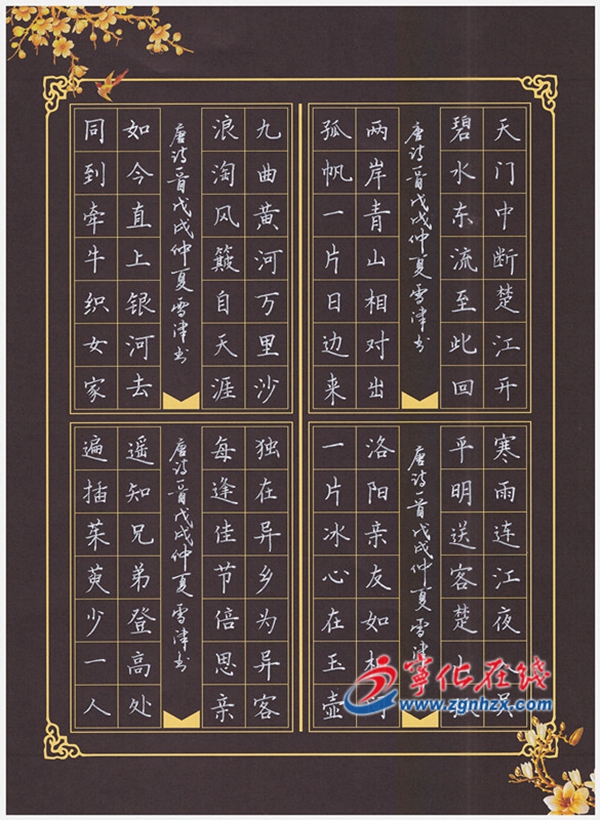 天门中断楚江开
碧水东流至此回
唐诗一首戊戌仲夏雪津书
两岸青山相对出
孤帆一片日边来
九曲黄河万里沙
浪淘风簸自天涯
唐诗一首戊戌仲夏雪津书
如今直上银河去
同到牵牛织女家
寒雨连江夜吴
平明送客楚
唐诗一首戊戌仲夏雪津
洛阳亲友如相
一片冰心在玉壶
独在异乡为异客
每逢佳节倍思亲
唐诗一首戊戌仲夏雪津书
遥知兄弟登高处
遍插茱萸少一人
宁化在线
www.zgnhzx.com